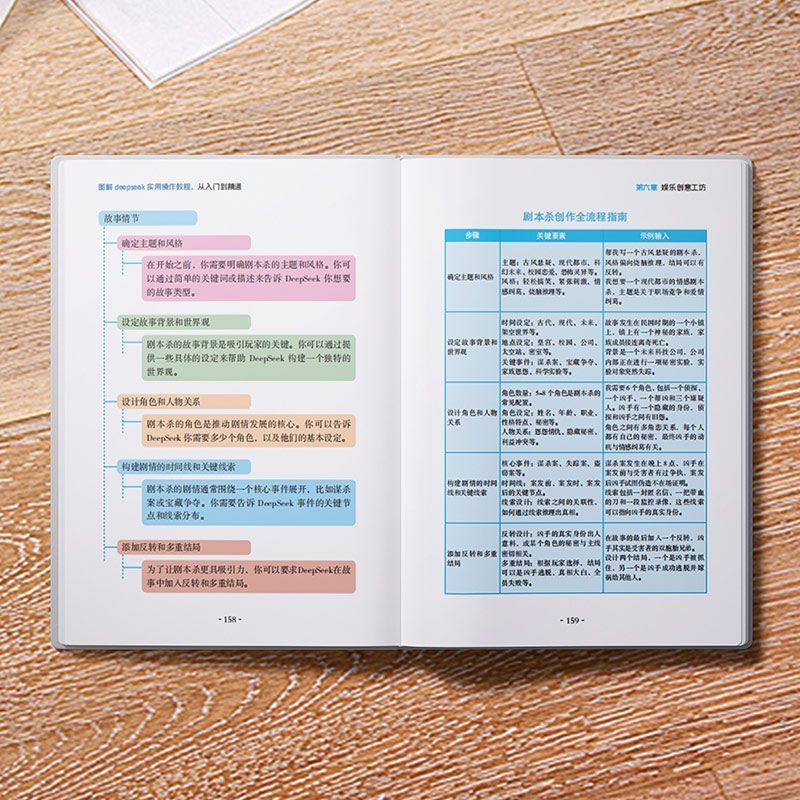 图解 deepseek 实用操作教程，从入门到精通
故事情节
确定主题和风格
在开始之前，你需要明确剧本杀的主题和风格。你可
以通过简单的关键词或描述来告诉 DeepSeek 你想要
的故事类型。
设定故事背景和世界观
剧本杀的故事背景是吸引玩家的关键。你可以通过提
供一些具体的设定来帮助 DeepSeek 构建一个独特的
世界观。
设计角色和人物关系
剧本杀的角色是推动剧情发展的核心。你可以告诉
DeepSeek 你需要多少个角色，以及他们的基本设定。
构建剧情的时间线和关键线索
剧本杀的剧情通常围绕一个核心事件展开，比如谋杀
案或宝藏争夺。你需要告诉 DeepSeek 事件的关键节
点和线索分布。
添加反转和多重结局
为了让剧本杀更具吸引力，你可以要求DeepSeek在故
事中加入反转和多重结局。
- 158 -
第六章 娱乐创意工坊
剧本杀创作全流程指南
步骤
关键要素
示例输入
确定主题和风格
主题：古风悬疑、现代都市、科
幻未来、校园恋爱、恐怖灵异等。
风格：轻松搞笑、紧张刺激、情
感纠葛、烧脑推理等。
帮我写一个古风悬疑的剧本杀，
风格偏向烧脑推理，结局可以有
反转。
我想要一个现代都市的情感剧本
杀，主题是关于职场竞争和爱情
纠葛。
设定故事背景和
世界观
时间设定：古代、现代、未来、
架空世界等。
地点设定：皇宫、校园、公司、
太空站、密室等。
关键事件：谋杀案、宝藏争夺、
家族恩怨、科学实验等。
故事发生在民国时期的一个小镇
上，镇上有一个神秘的家族，家
族成员接连离奇死亡。
背景是一个未来科技公司，公司
内部正在进行一项秘密实验，实
验对象突然失踪。
设计角色和人物
关系
角色数量：5-8 个角色是剧本杀的
常见配置。
角色设定：姓名、年龄、职业、
性格特点、秘密等。
人物关系：恩怨情仇、隐藏秘密、
利益冲突等。
我需要 6 个角色，包括一个侦探、
一个凶手、一个帮凶和三个嫌疑
人。凶手有一个隐藏的身份，侦
探和凶手之间有旧怨。
角色之间有多角恋关系，每个人
都有自己的秘密，最终凶手的动
机与情感纠葛有关。
构建剧情的时间
线和关键线索
核心事件：谋杀案、失踪案、盗
窃案等。
时间线：案发前、案发时、案发
后的关键节点。
线索设计：线索之间的关联性、
如何通过线索推理出真相。
谋杀案发生在晚上 8 点，凶手在
案发前与受害者有过争执，案发
后凶手试图伪造不在场证明。
线索包括一封匿名信、一把带血
的刀和一段监控录像，这些线索
可以指向凶手的真实身份。
添加反转和多重
结局
反转设计：凶手的真实身份出人
意料，或某个角色的秘密与主线
密切相关。
多重结局：根据玩家选择，结局
可以是凶手逃脱、真相大白、全
员失败等。
在故事的最后加入一个反转，凶
手其实是受害者的双胞胎兄弟。
设计两个结局，一个是凶手被抓
住，另一个是凶手成功逃脱并嫁
祸给其他人。
- 159 -